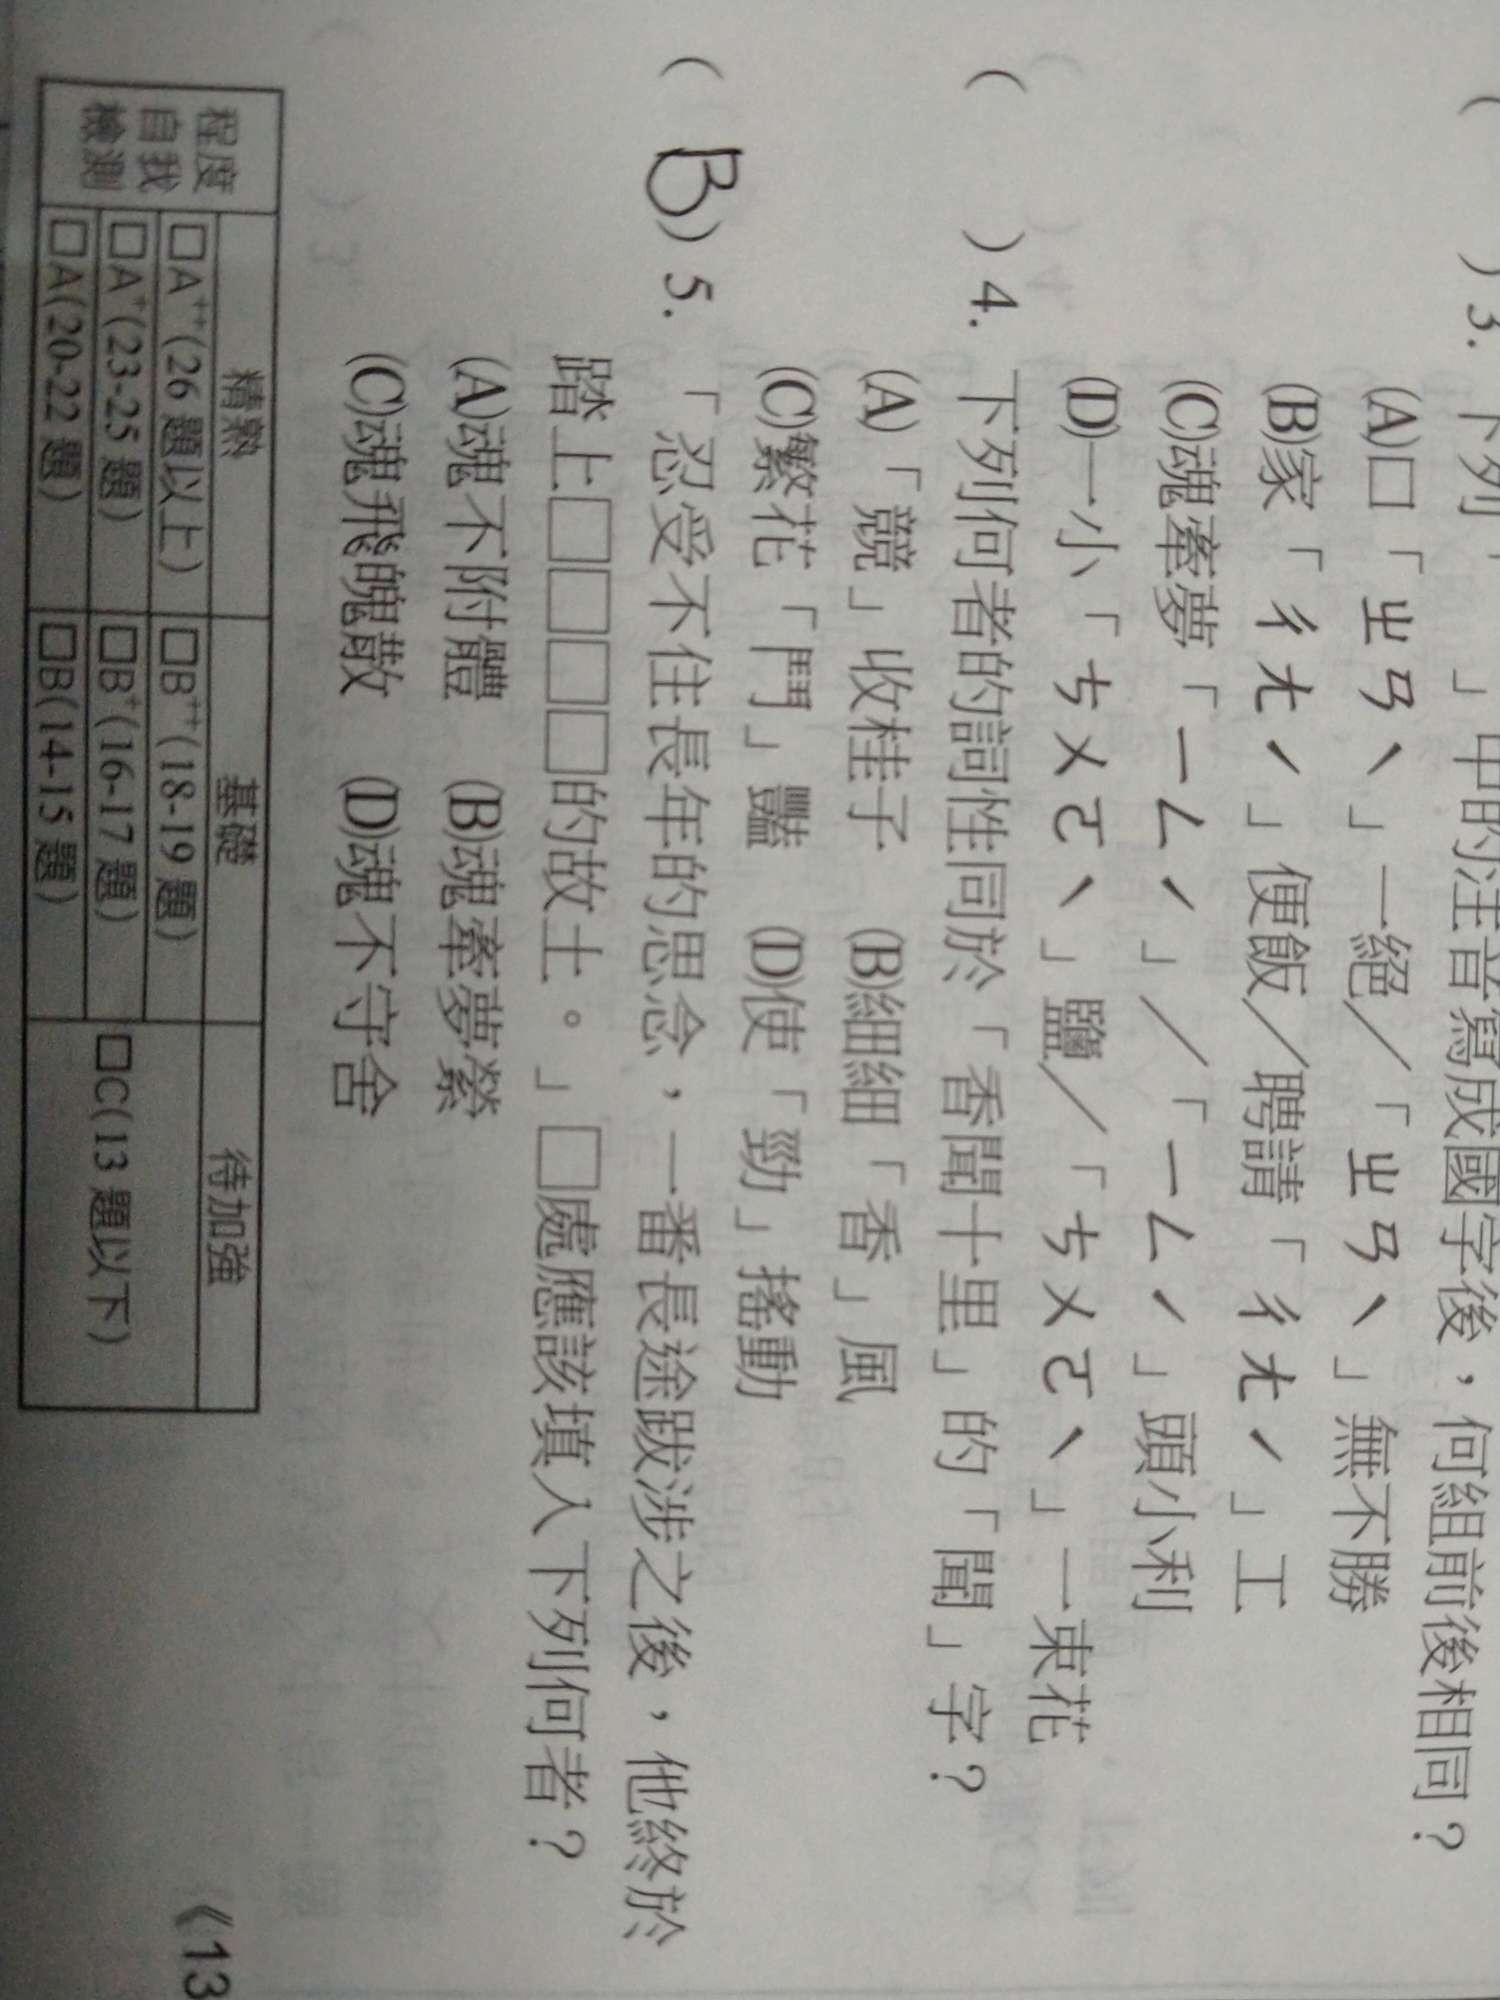 ( ) 3. 下列「 」中的注音寫成國字後，何組前後相同？
(A)口「ㄓㄢˋ」一絕／「ㄓㄢˋ」無不勝
(B)家「ㄔㄤˊ」便飯／聘請「ㄔㄤˊ」工
(C)魂牽夢「ㄧㄥˊ」／「ㄧㄥˊ」頭小利
(D)一小「ㄘㄨㄛˋ」鹽／「ㄘㄨㄛˋ」一束花
( ) 4. 下列何者的詞性同於「香聞十里」的「聞」字？
(A)「競」收桂子 (B)細細「香」風
(C)繁花「鬥」豔 (D)使「勁」搖動
( B ) 5. 「忍受不住長年的思念，一番長途跋涉之後，他終於
踏上□□□□的故土。」□處應該填入下列何者？
(A)魂不附體 (B)魂牽夢縈
(C)魂飛魄散 (D)魂不守舍
程度自我檢測 精熟 基礎 待加強
□A⁺⁺(26 題以上) □B⁺⁺(18-19 題) □C(13 題以下)
□A⁺(23-25 題) □B⁺(16-17 題)
□A(20-22 題) □B(14-15 題)
《13